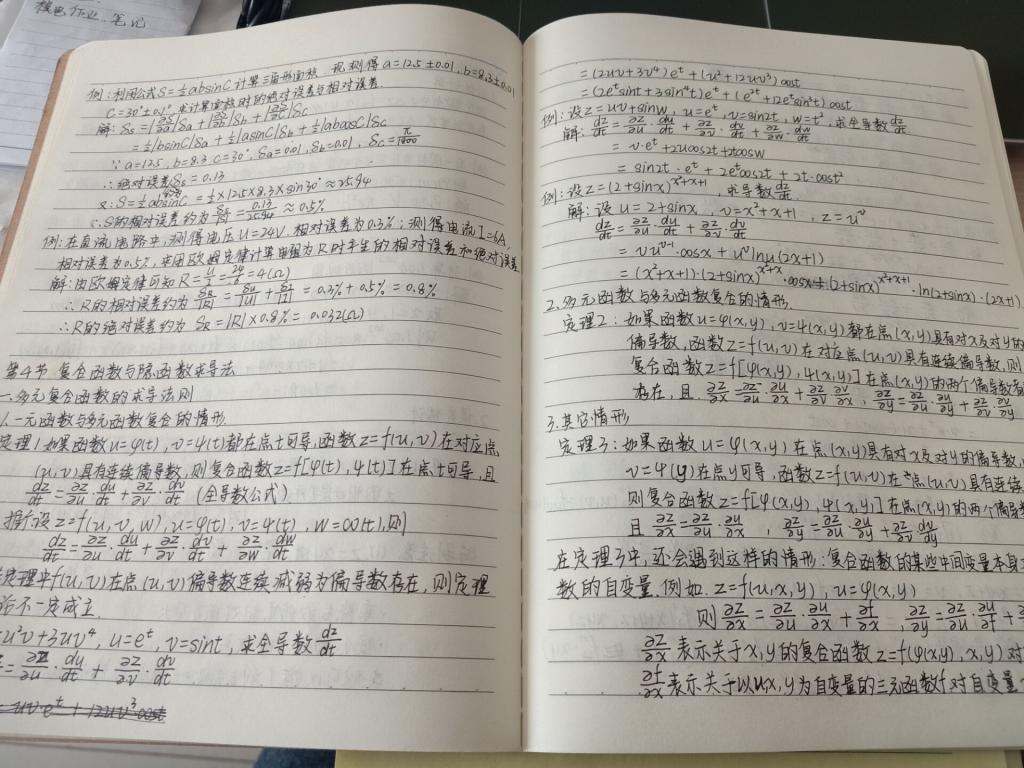 橙色作业.笔记
例:利用公式S=½absinC计算三角形面积.现测得a=12.5±0.01,b=8.3±0.01
C=30°±0.1°.求计算面积时的绝对误差与相对误差.
解:δs=|∂S/∂a|δa+|∂S/∂b|δb+|∂S/∂C|δc
=½|bsinC|δa+½|asinC|δb+½|abcosC|δc
∵a=12.5,b=8.3 C=30°,δa=0.01,δb=0.01,δc=π/1800
∴绝对误差δs=0.13
又:S=½absinC=½×12.5×8.3×sin30°≈25.94
∴S的相对误差约为δs/|S|=0.13/25.94≈0.5%
例:在直流电路中,测得电压U=24V.相对误差为0.3%;测得电流I=6A,
相对误差为0.5%,求用欧姆定律计算电阻为R时产生的相对误差和绝对误差
解:由欧姆定律可知R=U/I=24/6=4(Ω)
∴R的相对误差约为δR/|R|=δu/|U|+δI/|I|=0.3%+0.5%=0.8%
∴R的绝对误差约为δR=|R|×0.8%=0.032(Ω)
第4节 复合函数与隐函数求导法
一.多元复合函数的求导法则
1.一元函数与多元函数复合的情形.
定理1 如果函数u=φ(t),v=ψ(t)都在点t可导,函数z=f(u,v)在对应点
(u,v)具有连续偏导数,则复合函数z=f[φ(t),ψ(t)]在点t可导,且
dz/dt=∂z/∂u·du/dt+∂z/∂v·dv/dt (全导数公式)
推广设z=f(u,v,w),u=φ(t),v=ψ(t),w=ω(t),则
dz/dt=∂z/∂u·du/dt+∂z/∂v·dv/dt+∂z/∂w·dw/dt
定理中f(u,v)在点(u,v)偏导数连续减弱为偏导数存在,则定理
论不一定成立.
=u²v+3uv⁴,u=eᵗ,v=sint,求全导数dz/dt
=∂z/∂u·du/dt+∂z/∂v·dv/dt
=(2uv+3v⁴)eᵗ+(u²+12uv³)cost
=(2eᵗsint+3sin⁴t)eᵗ+(e²ᵗ+12eᵗsin³t)cost
例:设z=uv+sinw,u=eᵗ,v=sin2t,w=t²,求全导数dz/dt
解:dz/dt=∂z/∂u·du/dt+∂z/∂v·dv/dt+∂z/∂w·dw/dt
=v·eᵗ+2ucos2t+2tcosw
=sin2t·eᵗ+2eᵗcos2t+2t·cost²
例:设z=(2+sinx)^(x²+x+1),求导数dz/dx
解:设u=2+sinx,v=x²+x+1,z=uᵛ
dz/dt=∂z/∂u·du/dt+∂z/∂v·dv/dt
=vuᵛ⁻¹·cosx+uᵛlnu(2x+1)
=(x²+x+1)·(2+sinx)^(x²+x)·cosx+(2+sinx)^(x²+x+1)·ln(2+sinx)·(2x+1)
2.多元函数与多元函数复合的情形.
定理2:如果函数u=φ(x,y),v=ψ(x,y)都在点(x,y)具有对x及对y的
偏导数,函数z=f(u,v)在对应点(u,v)具有连续偏导数,则
复合函数z=f[φ(x,y),ψ(x,y)]在点(x,y)的两个偏导数都
存在,且∂z/∂x=∂z/∂u·∂u/∂x+∂z/∂v·∂v/∂x,∂z/∂y=∂z/∂u·∂u/∂y+∂z/∂v·∂v/∂y
3.其它情形
定理3:如果函数u=φ(x,y)在点(x,y)具有对x及对y的偏导数,
v=ψ(y)在点y可导,函数z=f(u,v)在点(u,v)具有连续
则复合函数z=f[φ(x,y),ψ(y)]在点(x,y)的两个偏导数
且∂z/∂x=∂z/∂u·∂u/∂x,∂z/∂y=∂z/∂u·∂u/∂y+∂z/∂v·dv/dy
在定理3中,还会遇到这样的情形:复合函数的某些中间变量本身
数的自变量.例如.z=f(u,x,y),u=φ(x,y)
则∂z/∂x=∂z/∂u·∂u/∂x+∂f/∂x ∂z/∂y=∂z/∂u·∂u/∂y+
∂z/∂x表示关于x,y的复合函数z=f(φ(x,y),x,y)对
∂f/∂x表示关于以u,x,y为自变量的三元函数f对自变量